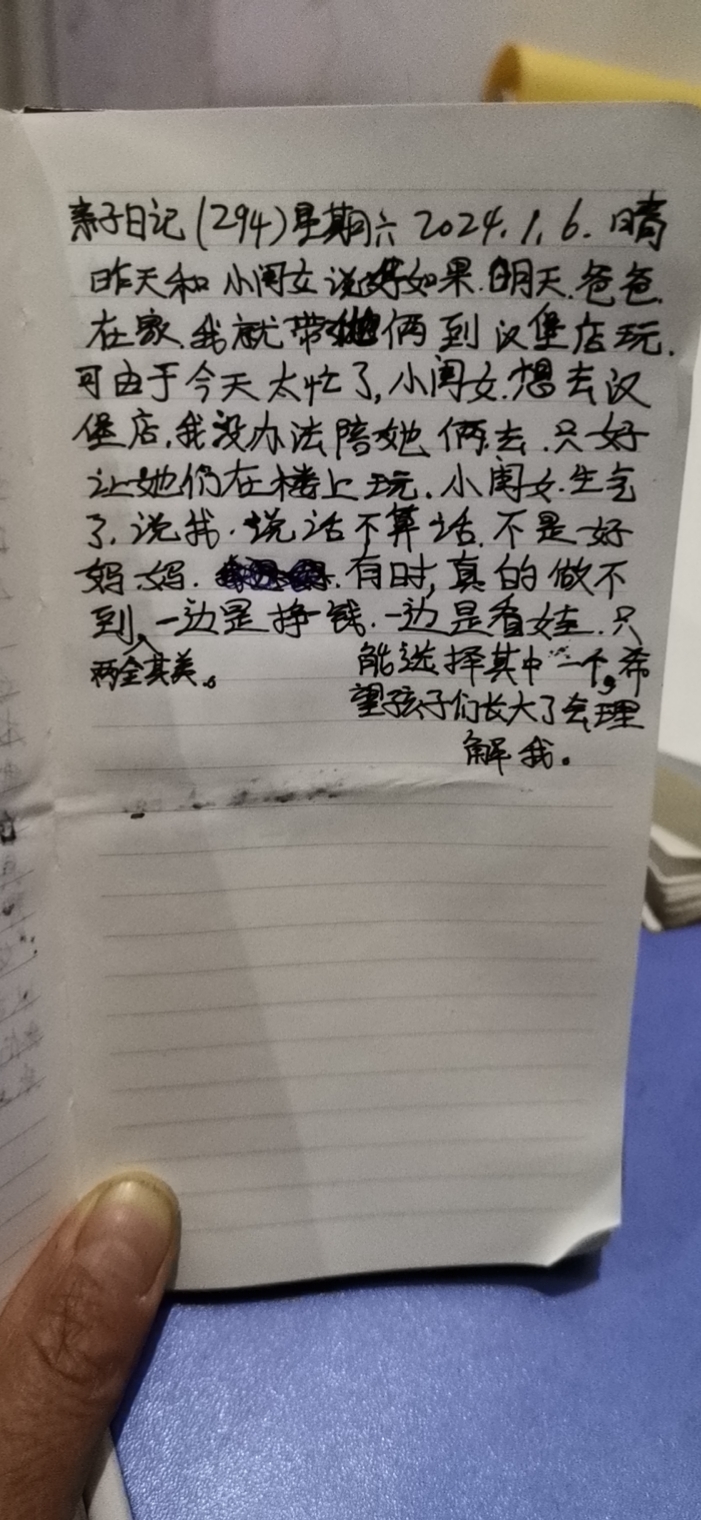 亲子日记(294)星期六 2024.1.6. 晴
昨天和小闺女说好如果.明天.爸爸.
在家.我就带她俩到汉堡店玩.
可由于今天太忙了,小闺女.想去汉
堡店.我没办法陪她俩.去.只好
让她们在楼上玩.小闺女.生气
了.说我.说话不算话.不是好
妈妈.有时,真的做不
到 一边是挣钱.一边是看娃.只
两全其美。
能选择其中一个,希
望孩子们长大了会理
解我。